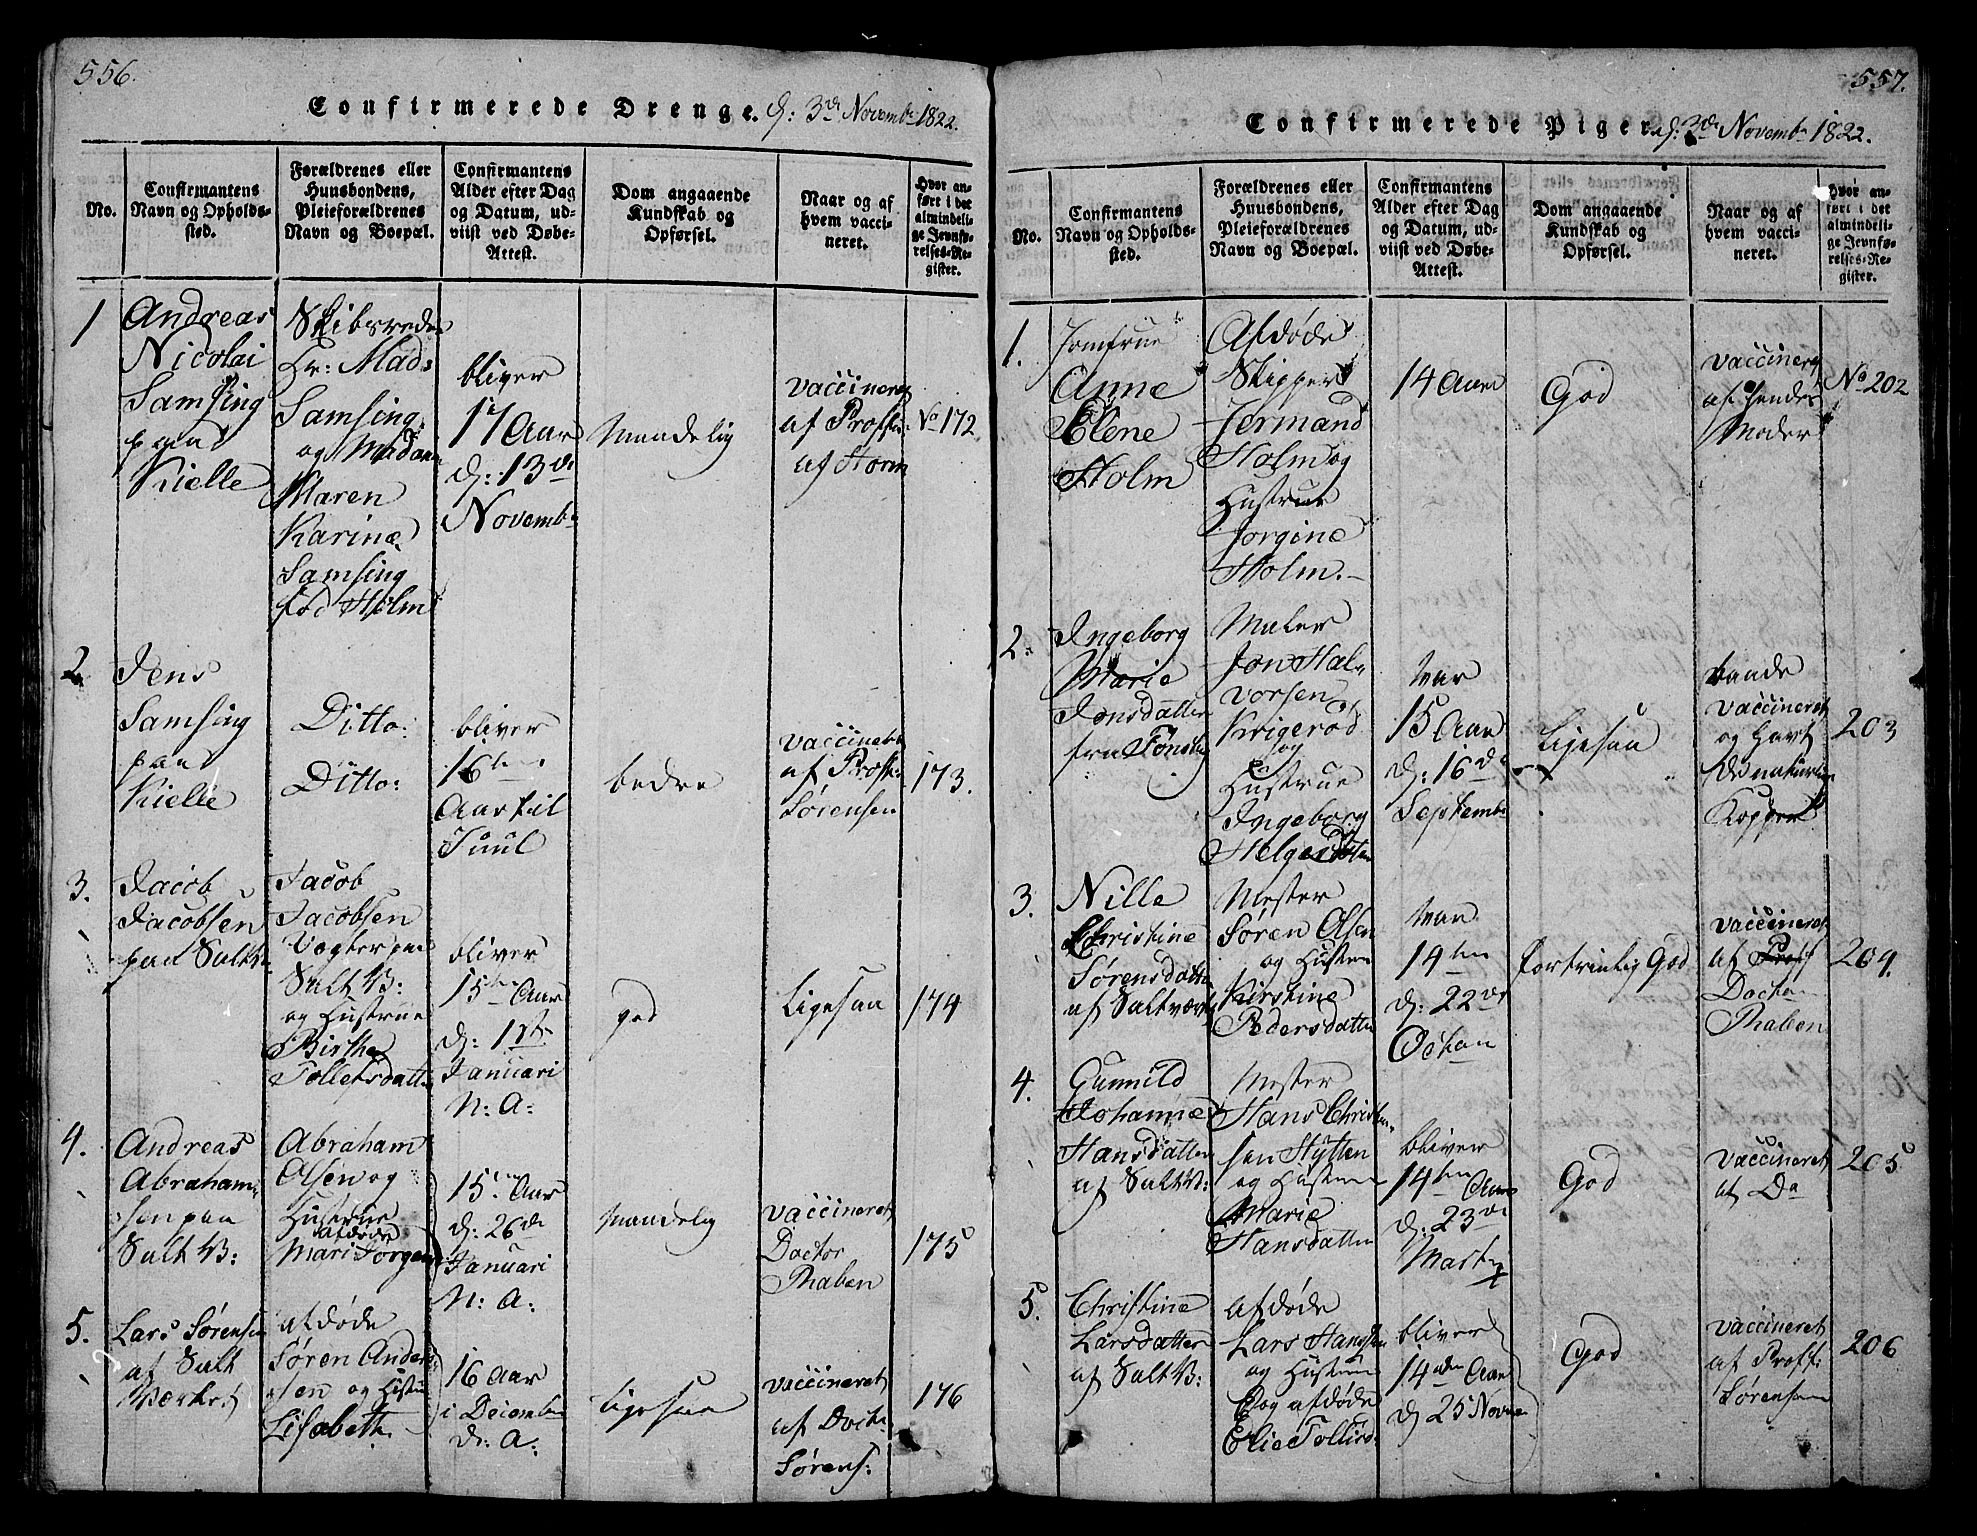 556.
Confirmerede Drenge. d: 3de Novembr 1822.
No.
Confirmantens
Navn og Opholds-
sted.
Forældrenes eller
Huusbondens,
Pleieforældrenes
Navn og Boepæl.
Confirmantens
Alder efter Dag
og Datum, ud-
viist ved Døbe-
Attest.
Dom angaaende
Kundskab og
Opførsel.
Naar og af
hvem vacci-
neret.
Hvor an-
ført i det
almindeli-
ge Jevnfø-
relses-Re-
gister.
1
Andreas
Nicolai
Samsing
paa
Kielle
Skibsreder
Hr: Mads
Samsing
og Madam
Maren
Karine
Samsing
fød Holm
bliver
17 Aar
d: 13de
Novembr
Maadelig
vaccineret
af Proff:
af Søren
No 172
2
Jens
Samsing
paa
Kielle
Ditto:
Ditto:
bliver
16ten
Aar til
Juul
bedre
vaccineret
af Proff:
Sørensen
173.
3.
Jacob
Jacobsen
paa Saltv:
Jacob
Jacobsen
Vogter paa
Salt V:
og Hustrue
Birthe
Tollefsdatter
bliver
15ten Aar
d: 1ste
Januari
N: A:
god
Ligesaa
174
4.
Andreas
Abraham-
sen paa
Salt V:
Abraham
Olsen og
Hustrue
afdøde
Mari Jorgens
15ten Aar
d: 26de
Januari
N: A:
Maadelig
vaccineret
Doctor
Thaben
175
5.
Lars Sørensen
af Salt
Værket
afdøde
Søren Anders-
sen og Hustrue
Lisabeth
16 Aar
i Decembr
d: A:
Ligesaa
vaccineret
af Doct:
Sørens:
176
557.
Confirmerede Piger. d: 3de Novembr 1822.
No.
Confirmantens
Navn og Opholds-
sted.
Forældrenes eller
Huusbondens,
Pleieforældrenes
Navn og Boepæl.
Confirmantens
Alder efter Dag
og Datum, ud-
viist ved Døbe-
Attest.
Dom angaaende
Kundskab og
Opførsel.
Naar og af
hvem vacci-
neret.
Hvor an-
ført i det
almindeli-
ge Jevnfø-
relses-Re-
gister.
1.
Jomfrue
Anne
Elene
Holm
Afdøde
Skipper
Jermand
Holm og
Hustrue
Jorgine
Holm.
14 Aar
God
vaccineret
af hendes
Moder
No 202
2.
Ingeborg
Marie
Jonsdatter
fra Tønsberg
Maler
Jon Hal-
vorsen
Krigerød
og
Hustrue
Ingeborg
Helgesdatter
var
15 Aar
d: 16de
Septembr
Ligesaa
baade
vaccineret
og havt
de naturlige
Kopper
203
3.
Nille
Christine
Sørensdatter
af Saltværket
Mester
Søren Olsen
og Hustrue
Kirstine
Pedersdatter
var
14ten
d: 22de
Octan
fortrinlig God
vaccineret
af Proff
Docton
Thaben
204.
4.
Gunnild
Johanne
Hansdatter
af Salt V:
Mester
Hans Christen-
sen Hytten
og Hustrue
Marie
Hansdatter
bliver
14ten Aar
d: 23de
Marty
God
vaccineret
af Do
205
5.
Christine
Larsdatter
af Salt V:
afdøde
Lars Hansen
og Hustrue
og afdøde
Elie Tollevs:
bliver
14den Aar
d 25 Nove
God
vaccineret
af Proff:
Sørensen
206